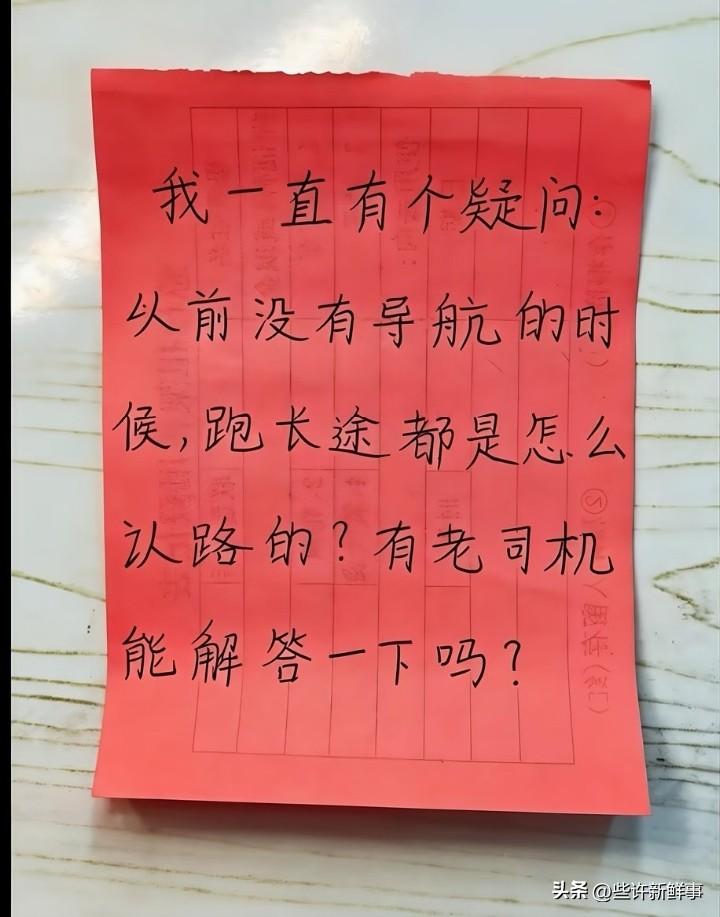 我一直有个疑问:
以前没有导航的时
候,跑长途都是怎么
认路的?有老司机
能解答一下吗?
头条 @些许新鲜事